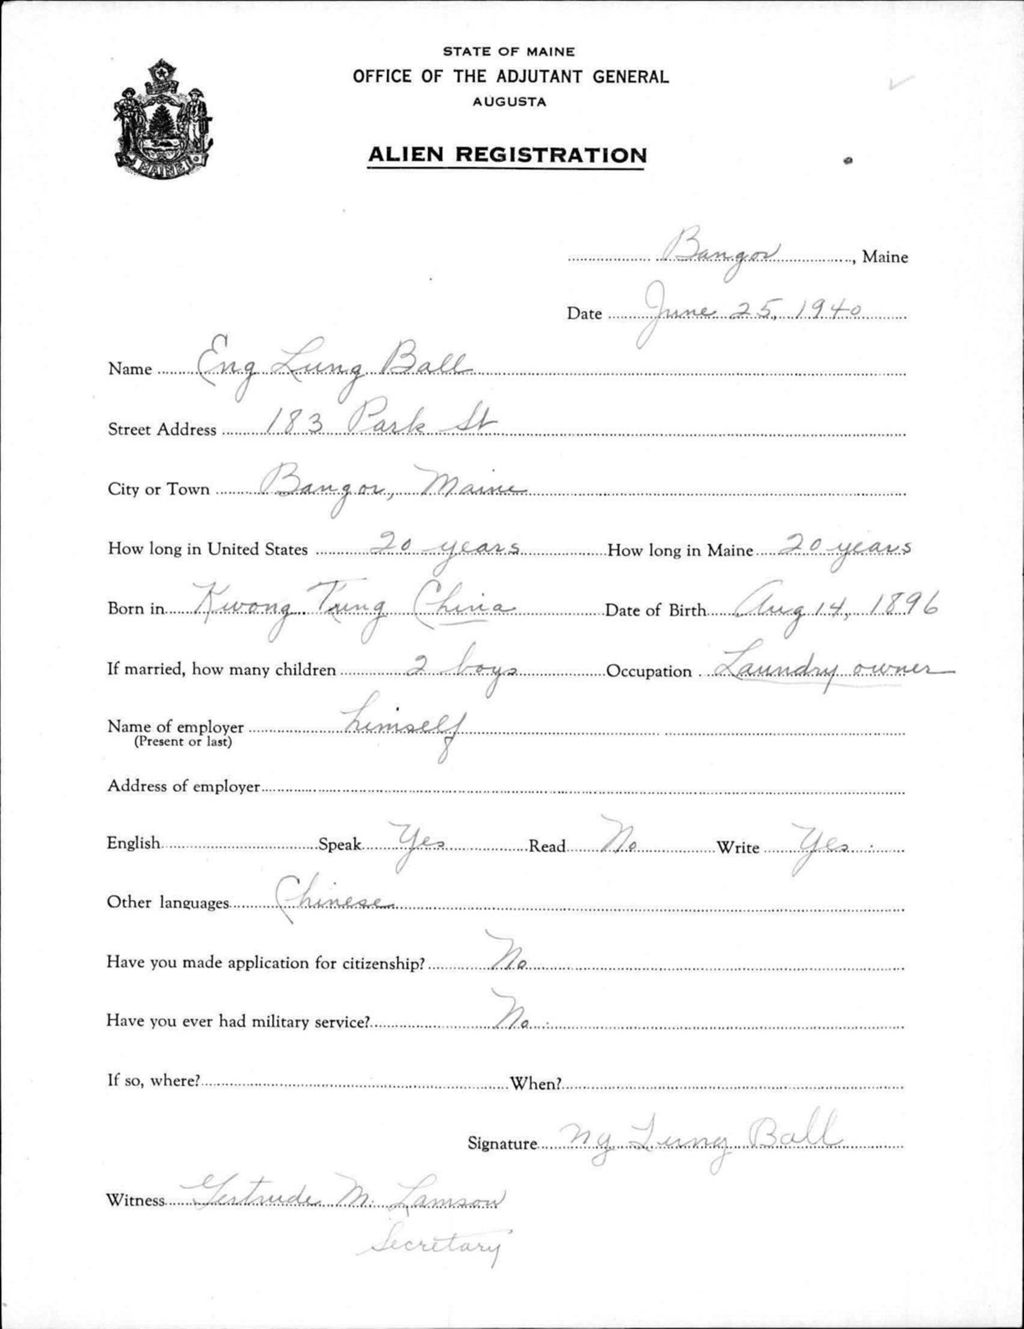 STATE OF MAINE
OFFICE OF THE ADJUTANT GENERAL
AUGUSTA
ALIEN REGISTRATION
MAINE
Bangor, Maine
Date June 25, 1940
Name Eng Lung Ball
Street Address 183 Park St
City or Town Bangor, Maine
How long in United States 20 years How long in Maine 20 years
Born in Kwong Tung China Date of Birth Aug 14, 1896
If married, how many children 2 boys Occupation Laundry owner
Name of employer himself
(Present or last)
Address of employer
English Speak Yes Read No Write Yes.
Other languages Chinese
Have you made application for citizenship? No
Have you ever had military service? No.
If so, where? When?
Signature Ng Lung Ball
Witness Gertrude M. Lamson
Secretary